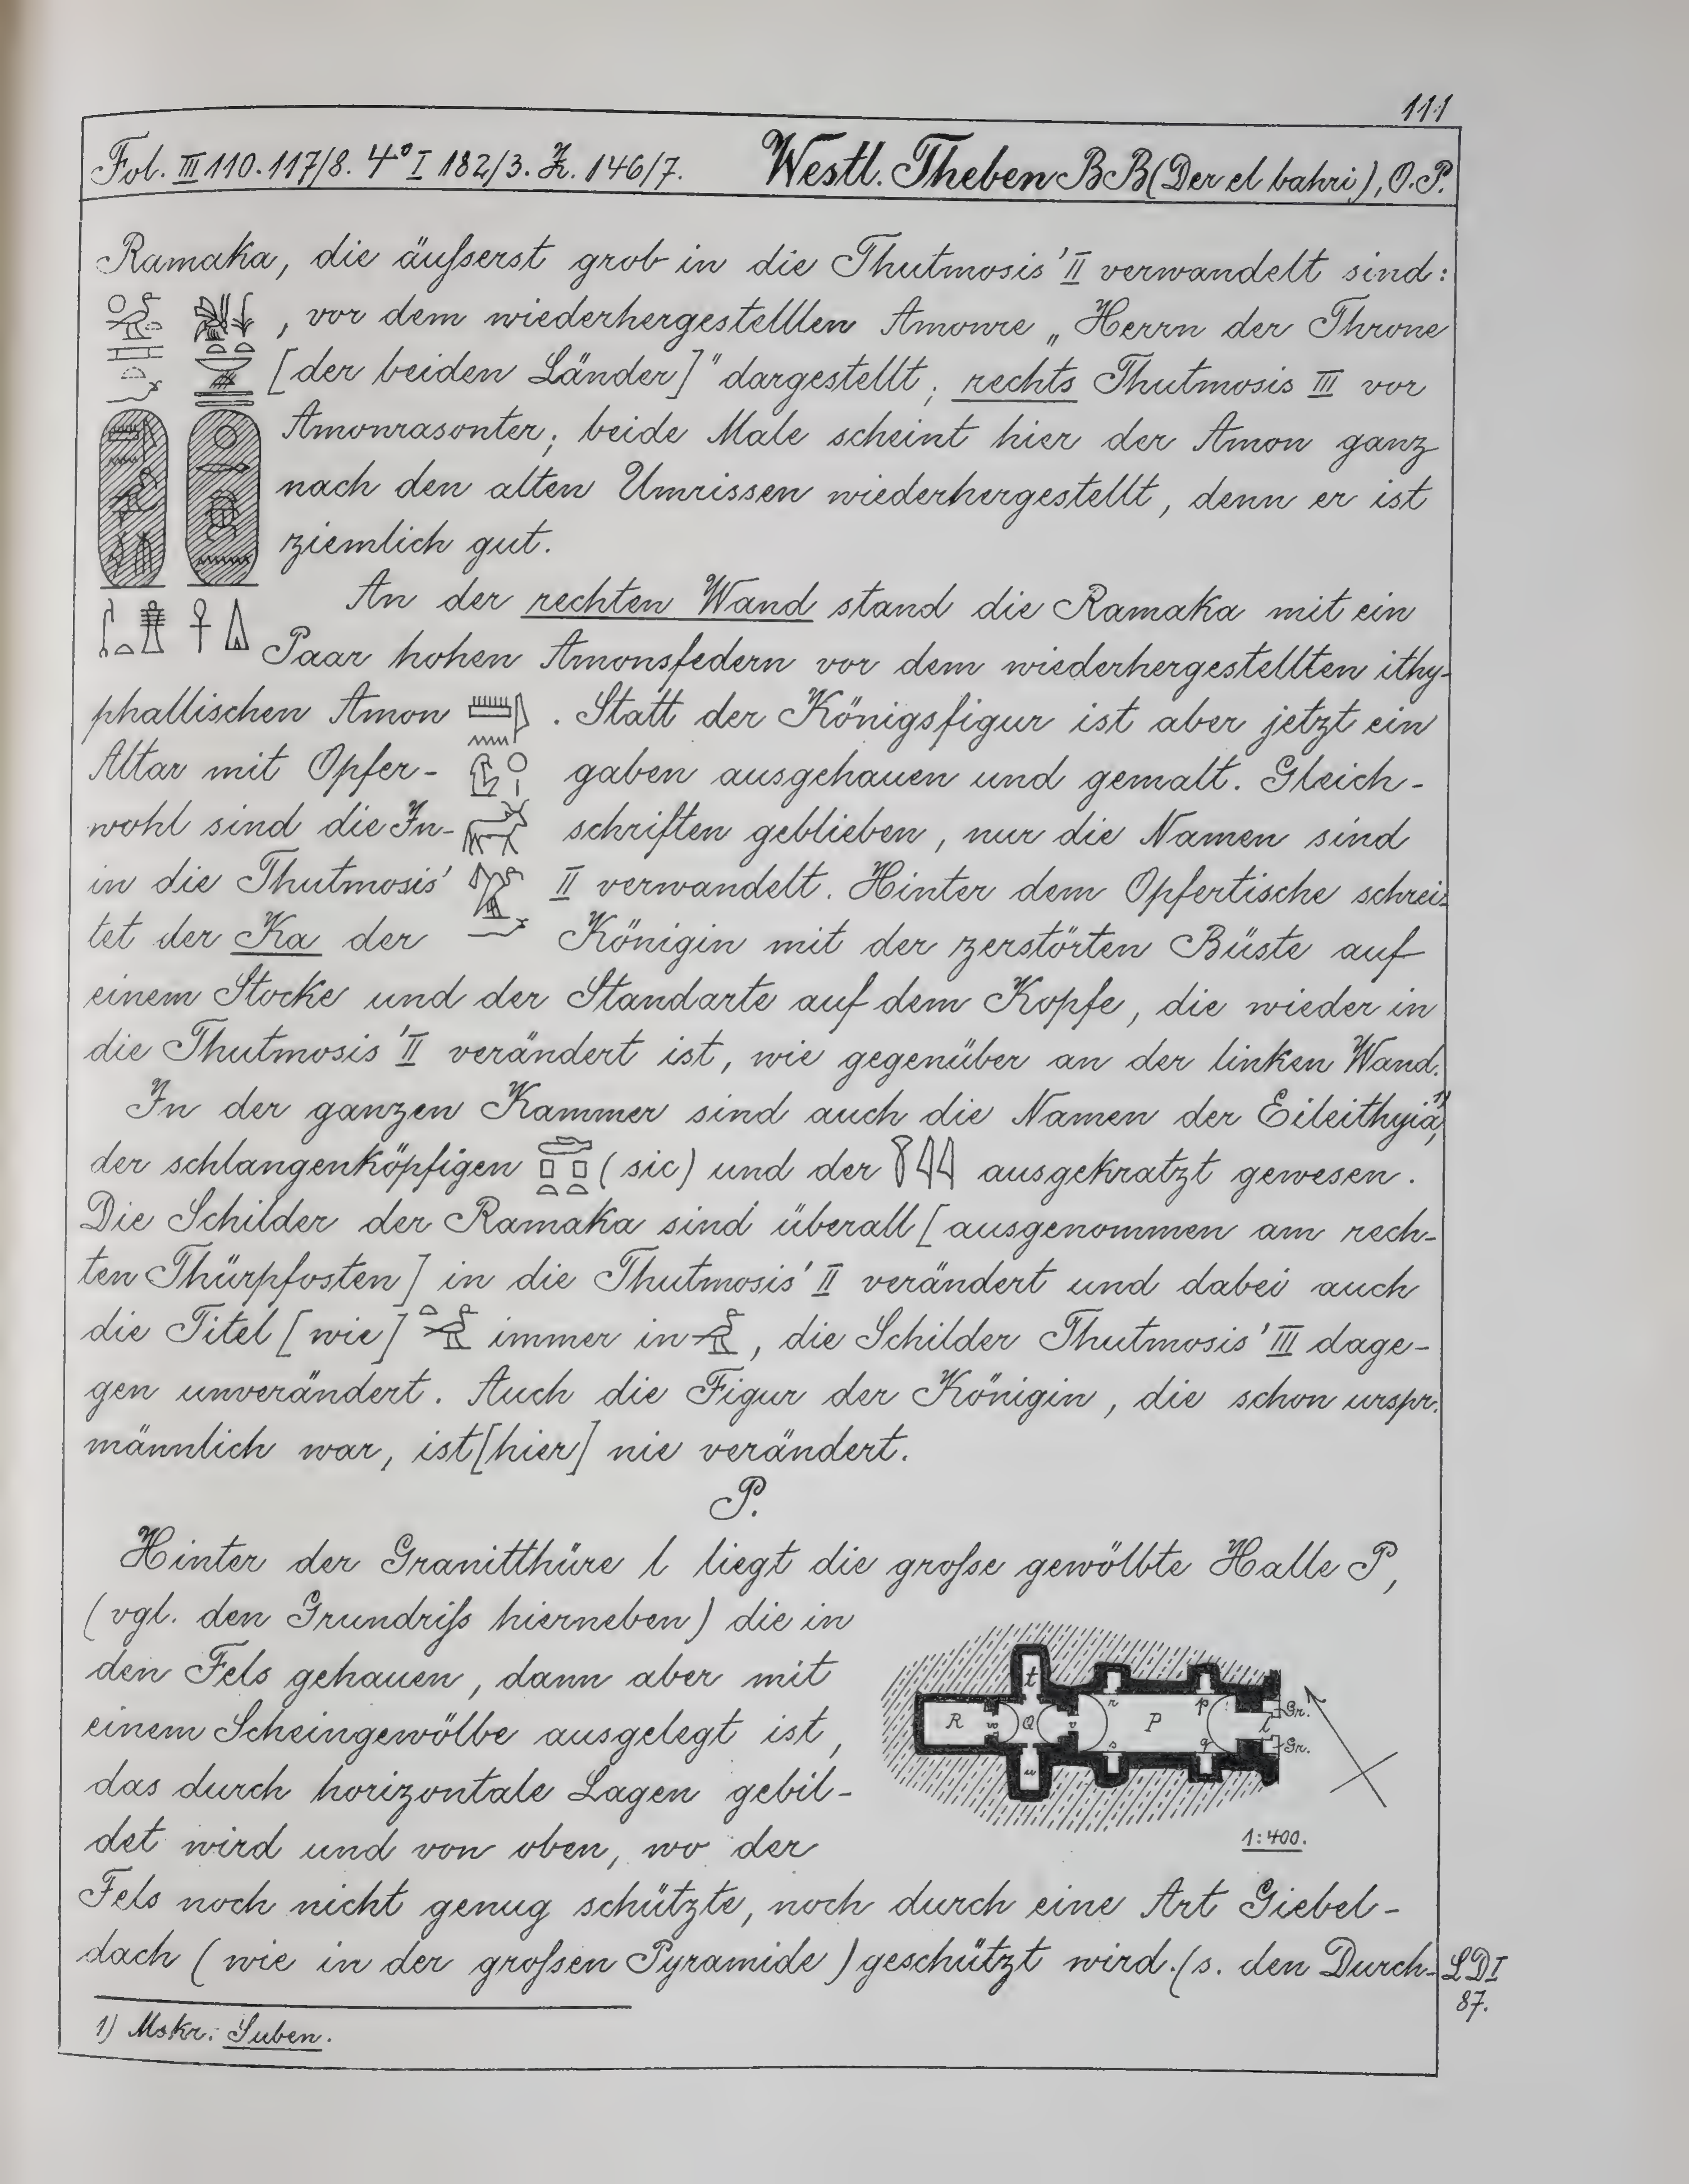 111
Fol. III 110.117/8. 4° I 182/3. Z. 146/7. Westl. Theben BB (Der el bahri), O.P.
Ramaka, die äußerst grob in die Thutmosis' II verwandelt sind:
, vor dem wiederhergestellten Amonre „Herrn der Throne
[der beiden Länder]" dargestellt; rechts Thutmosis III vor
Amonrasonter; beide Male scheint hier der Amon ganz
nach den alten Umrissen wiederhergestellt, denn er ist
ziemlich gut.
An der rechten Wand stand die Ramaka mit ein
Paar hohen Amonsfedern vor dem wiederhergestellten ithy-
phallischen Amon . Statt der Königsfigur ist aber jetzt ein
Altar mit Opfer- gaben ausgehauen und gemalt. Gleich-
wohl sind die In- schriften geblieben, nur die Namen sind
in die Thutmosis' II verwandelt. Hinter dem Opfertische schrei-
tet der Ka der Königin mit der zerstörten Büste auf
einem Stocke und der Standarte auf dem Kopfe, die wieder in
die Thutmosis' II verändert ist, wie gegenüber an der linken Wand.
In der ganzen Kammer sind auch die Namen der Eileithyia 1),
der schlangenköpfigen (sic) und der ausgekratzt gewesen.
Die Schilder der Ramaka sind überall [ausgenommen am rech-
ten Thürpfosten] in die Thutmosis' II verändert und dabei auch
die Titel [wie] immer in , die Schilder Thutmosis' III dage-
gen unverändert. Auch die Figur der Königin, die schon urspr.
männlich war, ist [hier] nie verändert.
P.
Hinter der Granitthüre l liegt die große gewölbte Halle P,
(vgl. den Grundriß hierneben) die in
den Fels gehauen, dann aber mit
einem Scheingewölbe ausgelegt ist,
das durch horizontale Lagen gebil-
det wird und von oben, wo der
Fels noch nicht genug schützte, noch durch eine Art Giebel-
dach (wie in der großen Pyramide) geschützt wird. (s. den Durch-
LD I
87.
t
r p Gr.
R w Q v P l
s q Gr.
u
1:400.
1) Mskr: Suben.